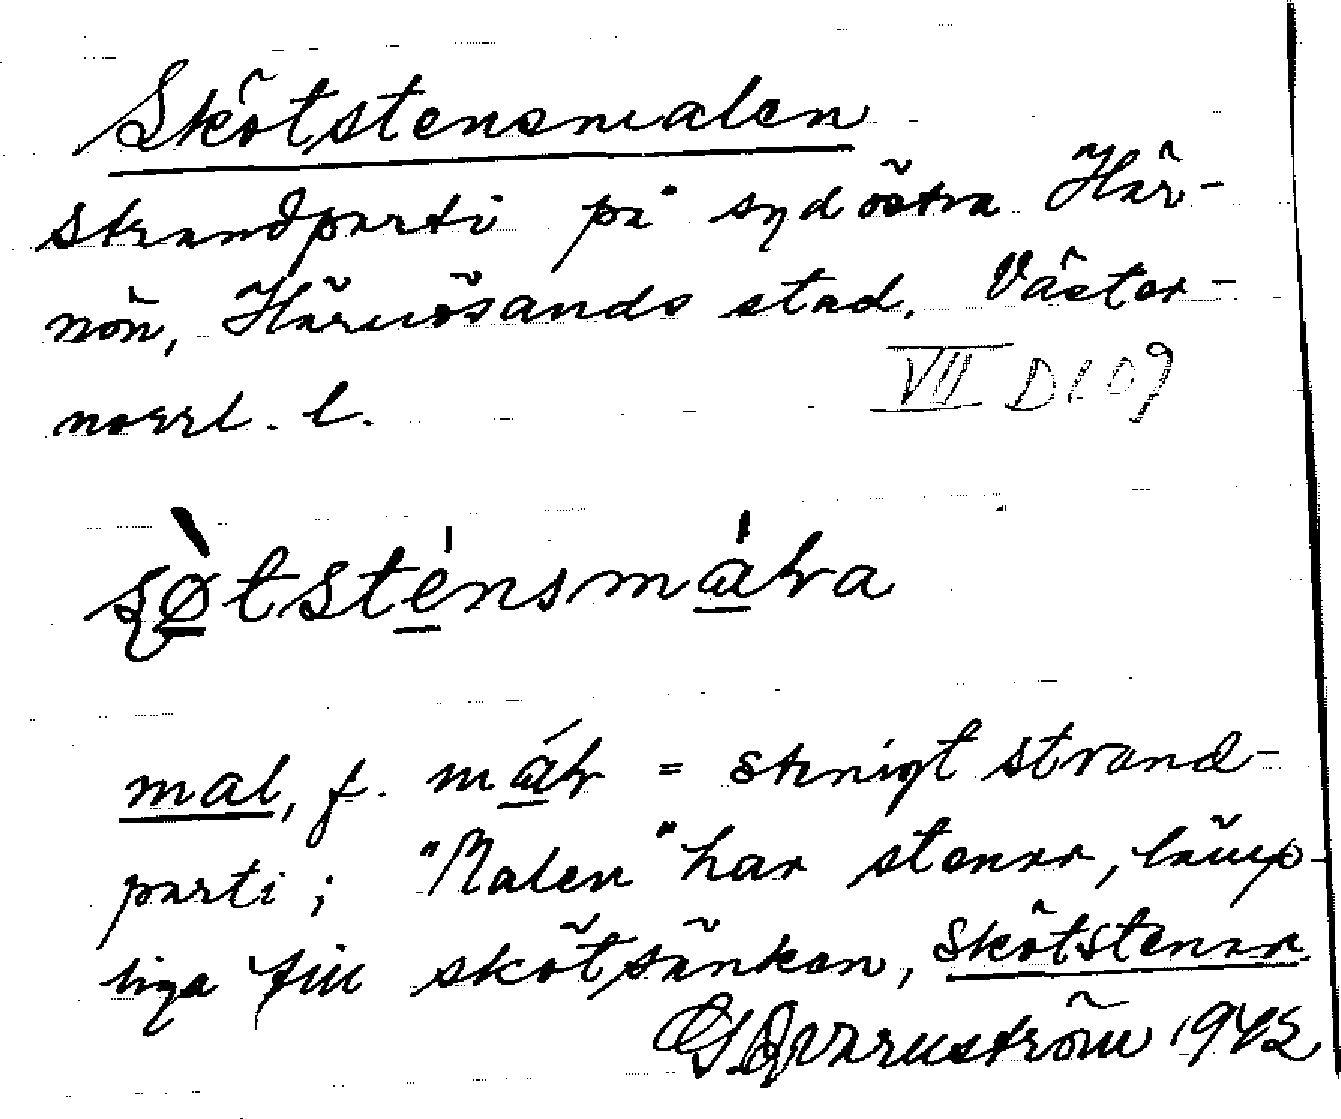 Skötstensmalen
strandparti på sydöstra Här-
nön, Härnösands stad. Väster-
norrl. l.
VII D109
ʂø̀tsténsmáɽa
mal, f. máɽ = stenigt strand-
parti; "Malen" har stenar, lämp-
liga till skötsänken, skötstenar
G Qvarnström 1942